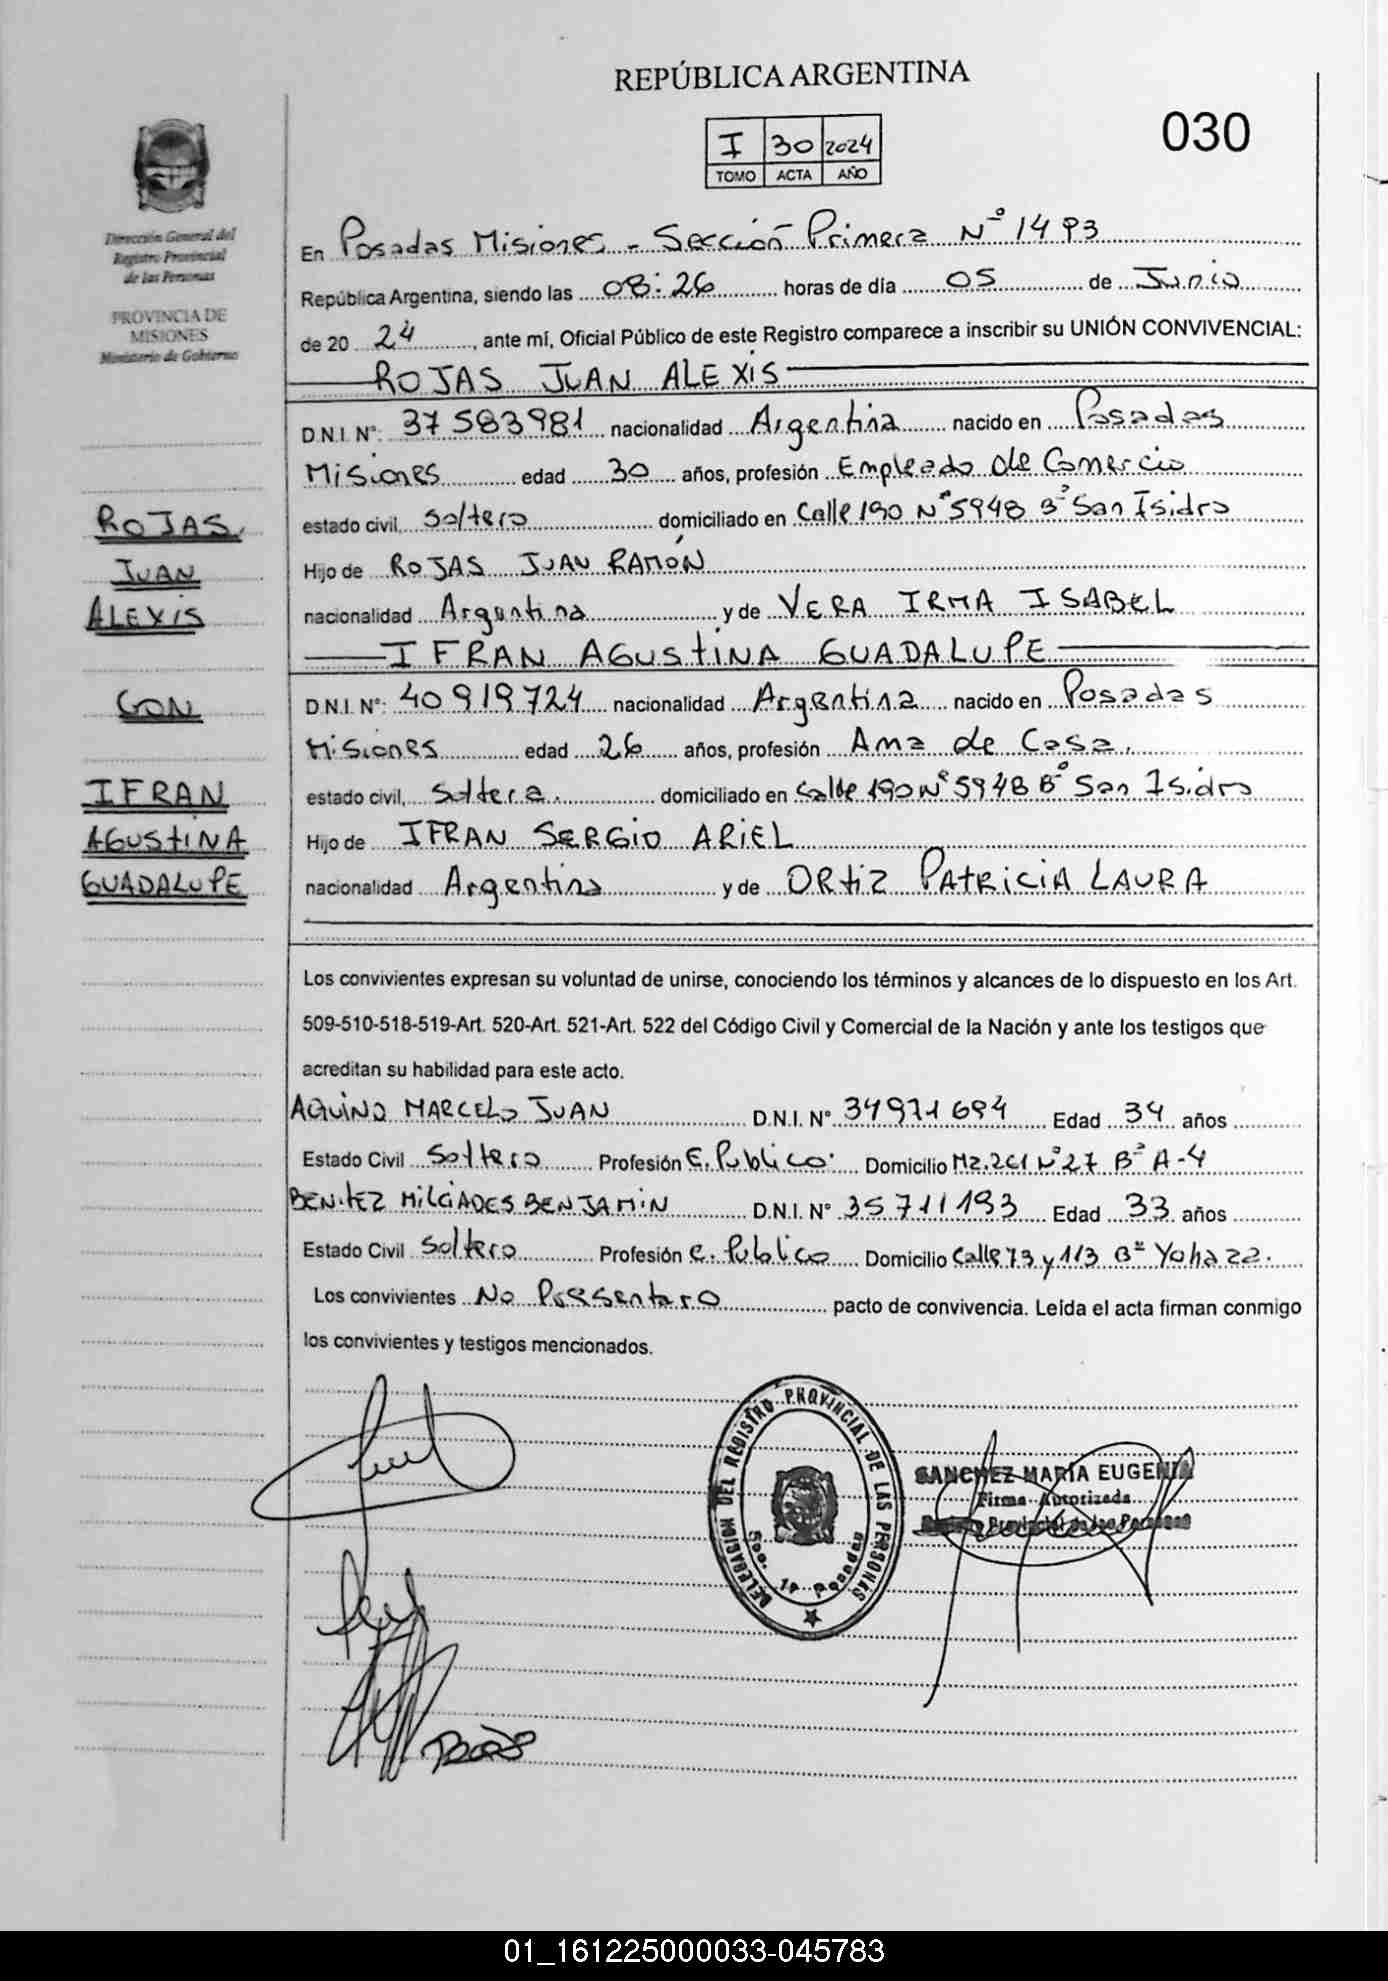 REPÚBLICA ARGENTINA
030
I 30 2024
TOMO ACTA AÑO
Dirección General del
Registro Provincial
de las Personas
PROVINCIA DE
MISIONES
Ministerio de Gobierno
En Posadas Misiones - Sección Primera Nº 1493
República Argentina, siendo las 08:26 horas de día 05 de Junio
de 20 24, ante mí, Oficial Público de este Registro comparece a inscribir su UNIÓN CONVIVENCIAL:
ROJAS JUAN ALEXIS
D.N.I. Nº: 37583981 nacionalidad Argentina nacido en Posadas
Misiones edad 30 años, profesión Empleado de Comercio
estado civil, Soltero domiciliado en Calle 190 Nº 5948 Bº San Isidro
Hijo de ROJAS JUAN RAMÓN
nacionalidad Argentina y de VERA IRMA ISABEL
IFRAN AGUSTINA GUADALUPE
D.N.I. Nº: 40919724 nacionalidad Argentina nacido en Posadas
Misiones edad 26 años, profesión Ama de Casa.
estado civil, Soltera. domiciliado en Calle 190 Nº 5948 Bº San Isidro
Hijo de IFRAN SERGIO ARIEL
nacionalidad Argentina y de ORTIZ PATRICIA LAURA
ROJAS
JUAN
ALEXIS
CON
IFRAN
AGUSTINA
GUADALUPE
Los convivientes expresan su voluntad de unirse, conociendo los términos y alcances de lo dispuesto en los Art.
509-510-518-519-Art. 520-Art. 521-Art. 522 del Código Civil y Comercial de la Nación y ante los testigos que
acreditan su habilidad para este acto.
AQUINO MARCELO JUAN D.N.I. Nº 34971694 Edad 34 años
Estado Civil Soltero Profesión E. Publico. Domicilio Mz. 261 Nº 27 Bº A-4
BENITEZ MILCIADES BENJAMIN D.N.I. Nº 35711193 Edad 33 años
Estado Civil Soltero Profesión E. Publico Domicilio Calle 73 y 113 Bº Yohazá.
Los convivientes No Presentaro pacto de convivencia. Leída el acta firman conmigo
los convivientes y testigos mencionados.
DELEGACION DEL REGISTRO PROVINCIAL DE LAS PERSONAS
Sec. 1ª Posadas
SANCHEZ MARÍA EUGENIA
Firma Autorizada
Registro Provincial de las Personas
01_161225000033-045783